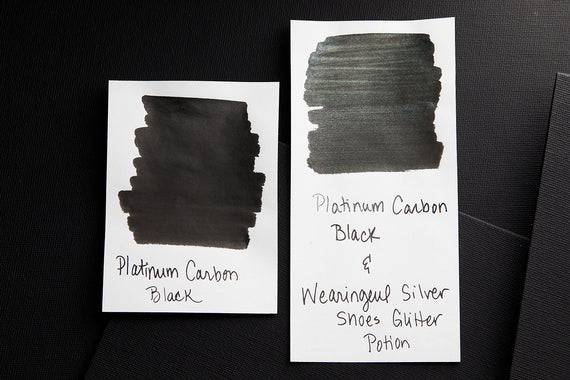 Platinum Carbon
Black
Platinum Carbon
Black
&
Wearingeul Silver
Shoes Glitter
Potion